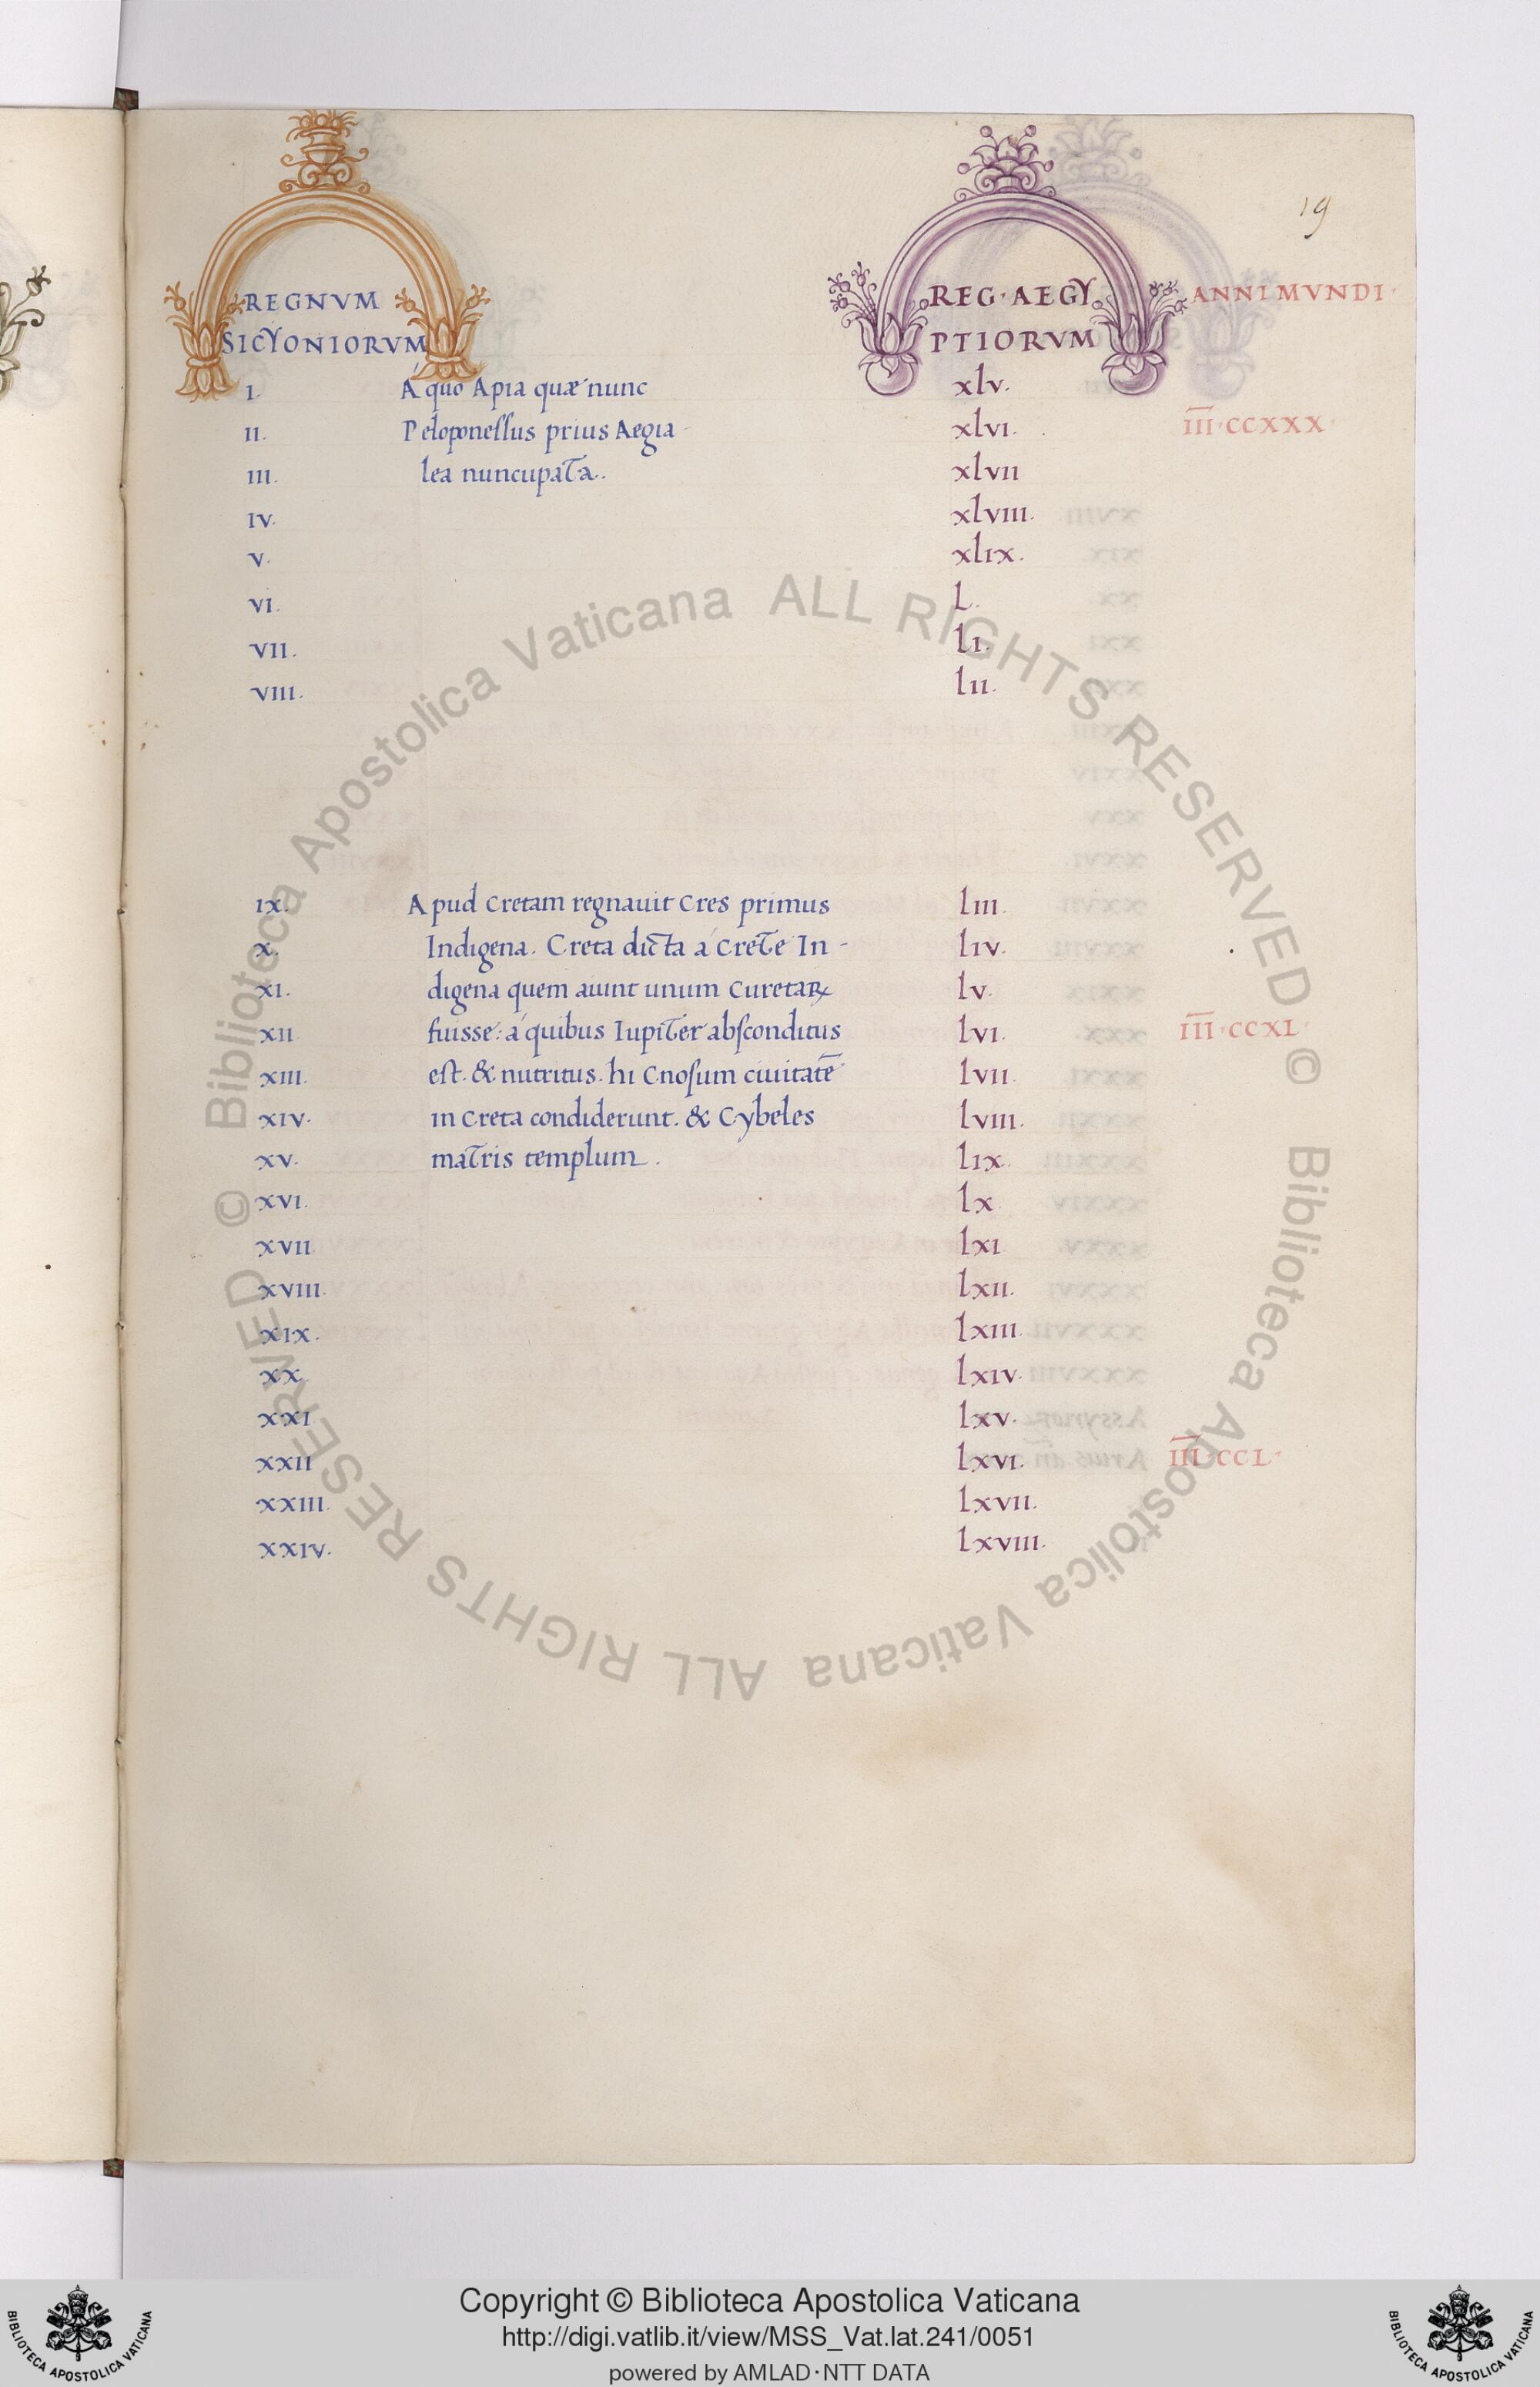 19
REGNVM REG·AEGY ANNI MVNDI·
SICYONIORVM PTIORVM
I. Á quo Apia quæ nunc xlv.
II. Peloponessus prius Aegia- xlvi. III·CCXXX·
III. lea nuncupata. xlvii
IV. xlviii.
V. xlix.
VI. L.
VII. Li.
VIII. lii.
IX. Apud Cretam regnauit Cres primus Liii.
X. Indigena. Creta dicta á Crete In- Liv.
XI. digena quem aiunt unum Curetaꝝ Lv.
XII fuisse: á quibus Iupiter absconditus Lvi. III·CCXL·
XIII. est. & nutritus. hi Cnosum ciuitatē Lvii.
XIV. in Creta condiderunt. & Cybeles Lviii.
XV. matris templum. Lix.
XVI. Lx
XVII Lxi
XVIII. Lxii.
XIX. Lxiii.
XX. Lxiv.
XXI Lxv.
XXII Lxvi. III·CCL·
XXIII. Lxvii.
XXIV. Lxviii.
© Biblioteca Apostolica Vaticana ALL RIGHTS RESERVED
© Biblioteca Apostolica Vaticana ALL RIGHTS RESERVED
Copyright © Biblioteca Apostolica Vaticana
http://digi.vatlib.it/view/MSS_Vat.lat.241/0051
powered by AMLAD·NTT DATA
BIBLIOTECA APOSTOLICA VATICANA
BIBLIOTECA APOSTOLICA VATICANA